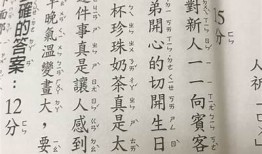 人祈「
15分
對新人一一向賓客
弟開心的切開生日
杯珍珠奶茶真是太
這件事真是讓人感到
早晚氣溫變畫大，要
確的答案：12分